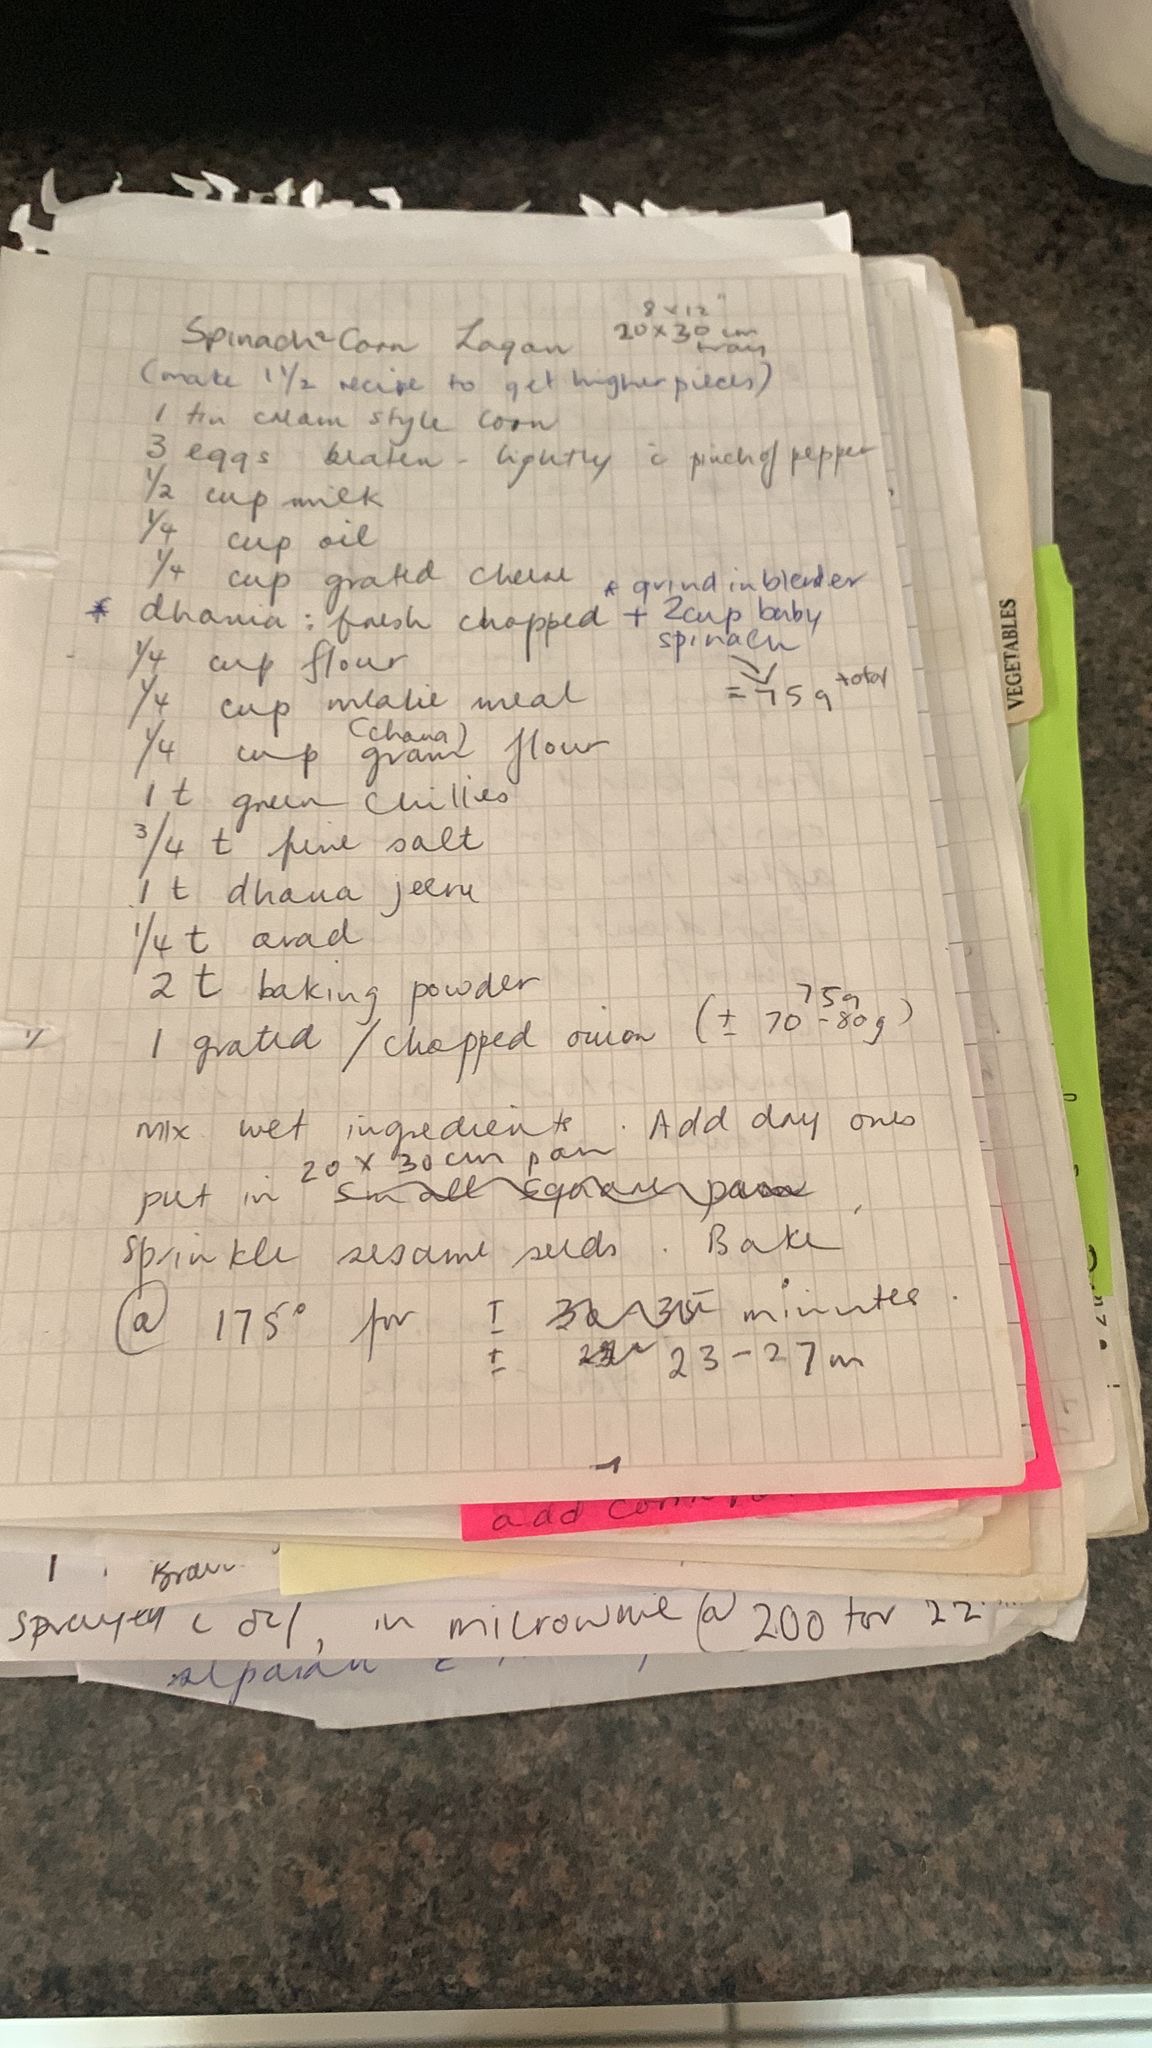 8 x 12"
Spinach Corn Lagan 20 x 30 cm
tray
(make 1 1/2 recipe to get higher pieces)
1 tin cream style corn
3 eggs beaten - lightly c̄ pinch of pepper
1/2 cup milk
1/4 cup oil
1/4 cup grated cheese
* grind in blender
* dhania : fresh chopped + 2 cup baby
spinach
= 75g total
1/4 cup flour
1/4 cup mealie meal
(chana)
1/4 cup gram flour
1 t green chillies
3/4 t fine salt
1 t dhana jeeru
1/4 t arad
2 t baking powder
75g
1 grated / chopped onion (± 70 - 80g)
mix wet ingredients. Add day ones
20 x 30 cm pan
put in small square pan,
sprinkle sesame seeds. Bake
@ 175° for ± 30 - 35 minutes.
± 23 - 27 m
VEGETABLES
add
1
sprayed c̄ oil, in microwave @ 200 for 22